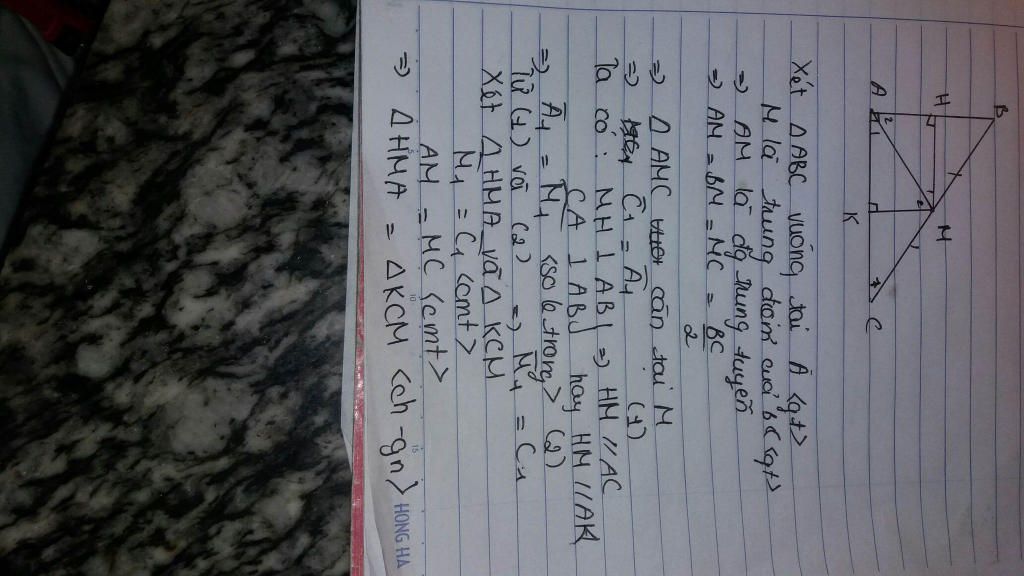 B
H
M
A
2
1
1
2
K
1
C
Xét Δ ABC vuông tại A <gt>
M là trung điểm của BC <gt>
=> AM là đg trung tuyến
=> AM = BM = MC = BC/2
=> Δ AMC cân tại M
=> C1 = A1 (1)
Ta có: MH ⊥ AB } => HM // AC
CA ⊥ AB } hay HM // AK
=> A1 = M1 <so le trong> (2)
Từ (1) và (2) => M1 = C1
Xét Δ HMA và Δ KCM
M1 = C1 <cmt>
AM = MC <cmt>
=> Δ HMA = Δ KCM <ch - gn>
5
10
15
HONG HA